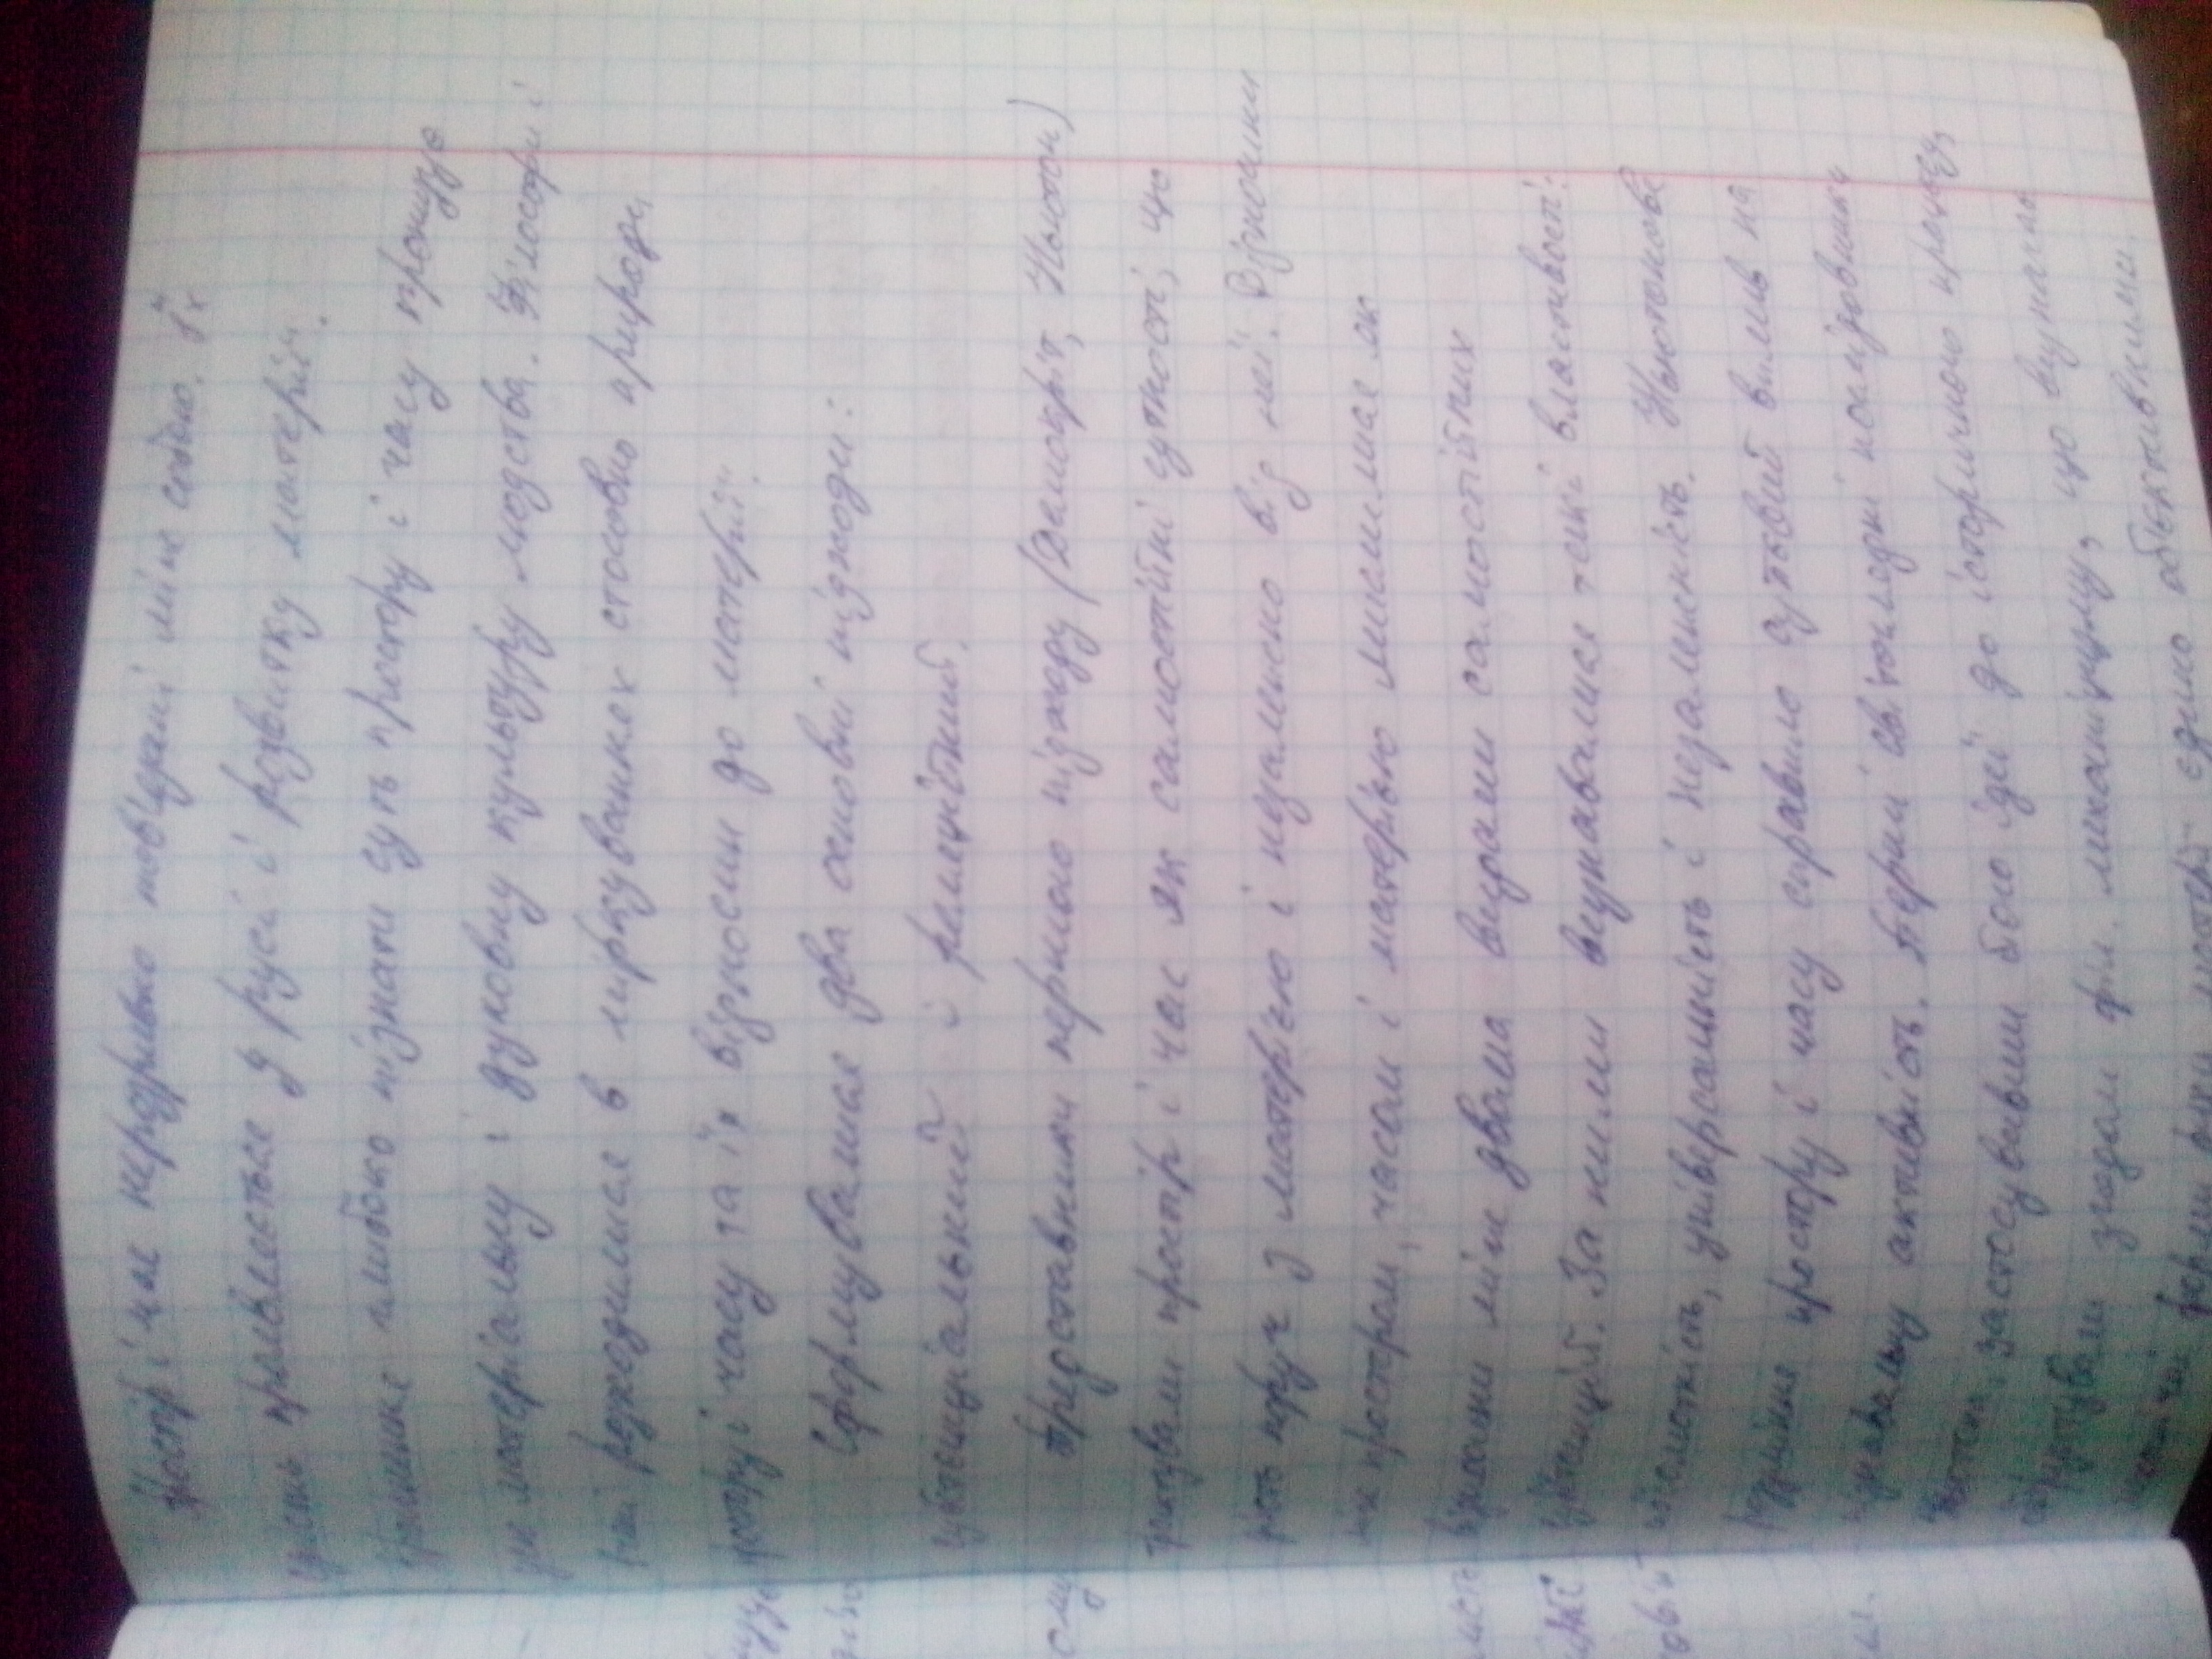 Простір і час нерозривно пов'язані між собою. Їх
єдність проявляється у русі і розвитку матерії.
Прагнення глибоко пізнати суть простору і часу пронизує
усю матеріальну і духовну культуру людства. Філософи і
вчені розходилися в міркуваннях стосовно природи
простору і часу та їх відносин до матерії.
Сформувалися два основні підходи:
субстанціальний і реляційний.
Представники першого підходу (Демокріт, Ньютон)
трактували простір і час як самостійні сутності, що
поруч з матерією і незалежно від неї. Відносини
між простором, часом і матерією мислилися як
відносини між двома видами самостійних
субстанцій. За ними визнавалися такі властивості:
абсолютність, універсальність і незалежність. Ньютонове
розуміння простору і часу справило суттєвий вплив на
пізнавальну активність. Перші світоглядні послідовники
Ньютона, застосувавши його ідеї до історичного процесу,
обґрунтували згодом філ. механіцизму, що визначає
механічні форми руху матерії єдино об'єктивними.